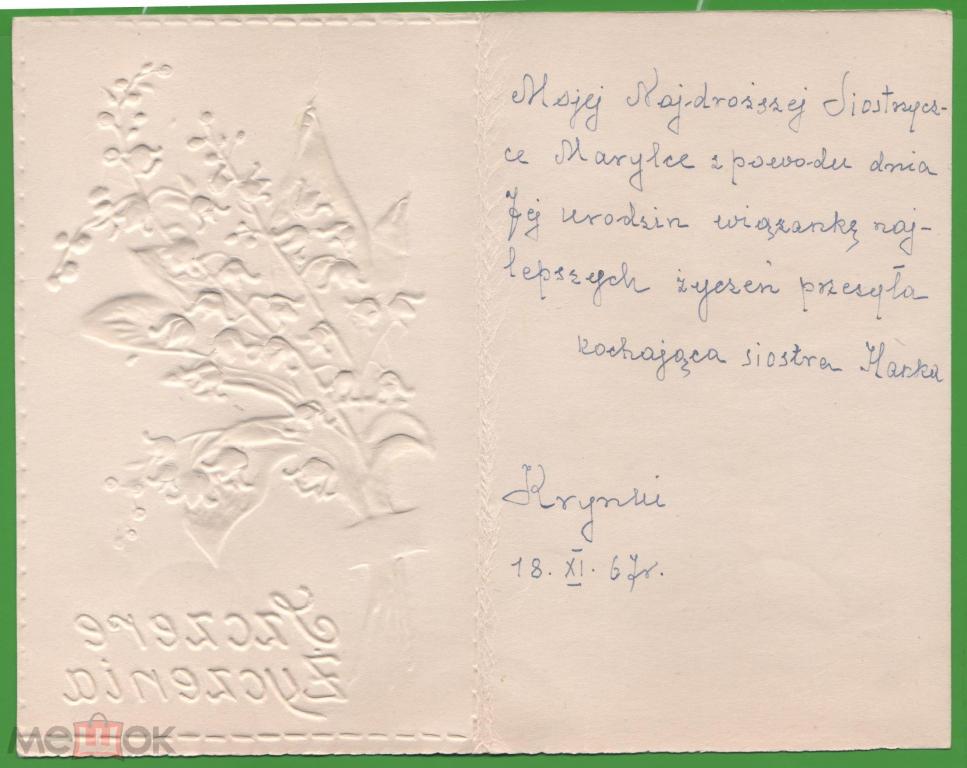 Mojej Najdroższej Siostrzycz-
ce Marylce z powodu dnia
Jej urodzin wiązankę naj-
lepszych życzeń przesyła
kochająca siostra Hanka
Krynki
18. XI. 67r.
Szczere
Życzenia
мешок